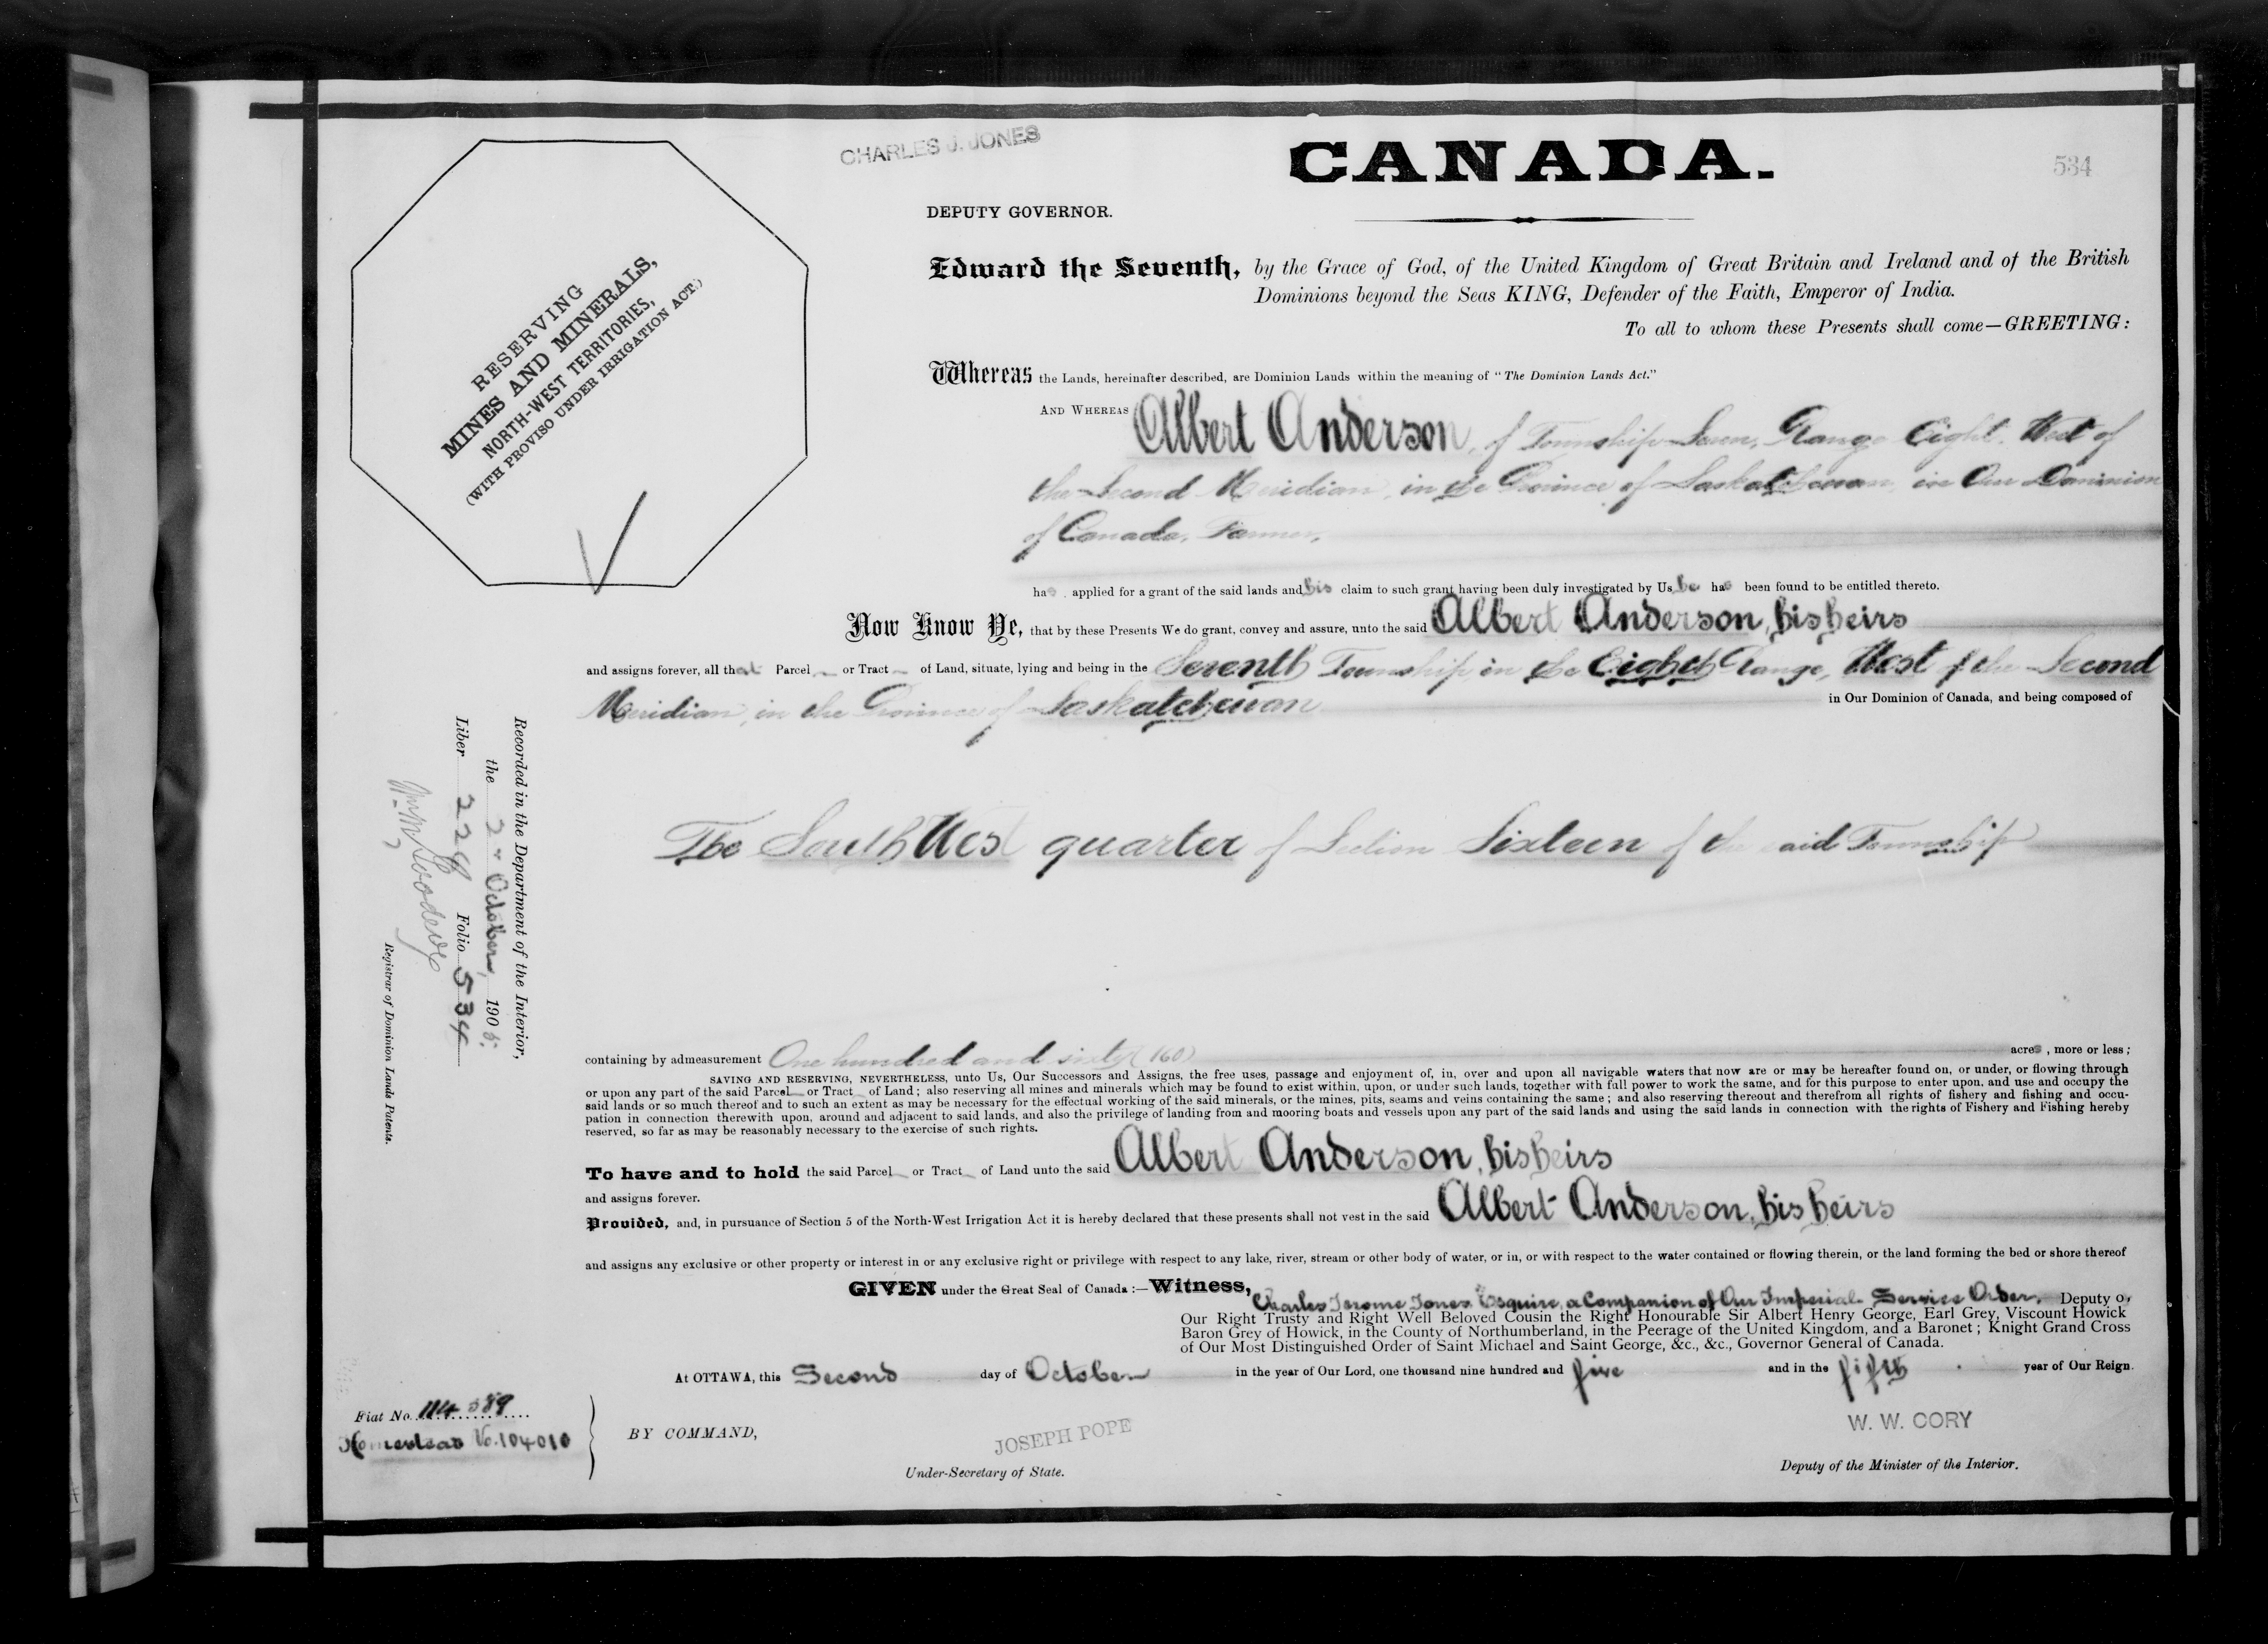 CHARLES J. JONES
CANADA.
534
DEPUTY GOVERNOR.
RESERVING
MINES AND MINERALS,
NORTH-WEST TERRITORIES,
(WITH PROVISO UNDER IRRIGATION ACT.)
Edward the Seventh, by the Grace of God, of the United Kingdom of Great Britain and Ireland and of the British
Dominions beyond the Seas KING, Defender of the Faith, Emperor of India.
To all to whom these Presents shall come—GREETING:
Whereas the Lands, hereinafter described, are Dominion Lands within the meaning of "The Dominion Lands Act."
AND WHEREAS Albert Anderson, of Township Seven, Range Eight, West of
the Second Meridian, in the Province of Saskatchewan, in Our Dominion
of Canada, Farmer,
has applied for a grant of the said lands and his claim to such grant having been duly investigated by Us he has been found to be entitled thereto.
Now Know Ye, that by these Presents We do grant, convey and assure, unto the said Albert Anderson, his heirs
and assigns forever, all that Parcel or Tract of Land, situate, lying and being in the Seventh Township, in the Eighth Range, West of the Second
Meridian, in the Province of Saskatchewan in Our Dominion of Canada, and being composed of
The South West quarter of Section Sixteen of the said Township
Recorded in the Department of the Interior,
the 2" October, 1905.
Liber 228 Folio 534
Registrar of Dominion Lands Patents.
containing by admeasurement One hundred and sixty (160) acres, more or less;
SAVING AND RESERVING, NEVERTHELESS, unto Us, Our Successors and Assigns, the free uses, passage and enjoyment of, in, over and upon all navigable waters that now are or may be hereafter found on, or under, or flowing through
or upon any part of the said Parcel or Tract of Land; also reserving all mines and minerals which may be found to exist within, upon, or under such lands, together with full power to work the same, and for this purpose to enter upon, and use and occupy the
said lands or so much thereof and to such an extent as may be necessary for the effectual working of the said minerals, or the mines, pits, seams and veins containing the same; and also reserving thereout and therefrom all rights of fishery and fishing and occu-
pation in connection therewith upon, around and adjacent to said lands, and also the privilege of landing from and mooring boats and vessels upon any part of the said lands and using the said lands in connection with the rights of Fishery and Fishing hereby
reserved, so far as may be reasonably necessary to the exercise of such rights.
To have and to hold the said Parcel or Tract of Land unto the said Albert Anderson, his heirs
and assigns forever.
Provided, and, in pursuance of Section 5 of the North-West Irrigation Act it is hereby declared that these presents shall not vest in the said Albert Anderson, his heirs
and assigns any exclusive or other property or interest in or any exclusive right or privilege with respect to any lake, river, stream or other body of water, or in, or with respect to the water contained or flowing therein, or the land forming the bed or shore thereof
GIVEN under the Great Seal of Canada:—Witness, Charles Jerome Jones, Esquire, a Companion of Our Imperial Service Order, Deputy of
Our Right Trusty and Right Well Beloved Cousin the Right Honourable Sir Albert Henry George, Earl Grey, Viscount Howick
Baron Grey of Howick, in the County of Northumberland, in the Peerage of the United Kingdom, and a Baronet; Knight Grand Cross
of Our Most Distinguished Order of Saint Michael and Saint George, &c., &c., Governor General of Canada.
At OTTAWA, this Second day of October in the year of Our Lord, one thousand nine hundred and five and in the fifth year of Our Reign.
Fiat No. 114589
Homestead No. 104010
BY COMMAND,
JOSEPH POPE
Under-Secretary of State.
W. W. CORY
Deputy of the Minister of the Interior.